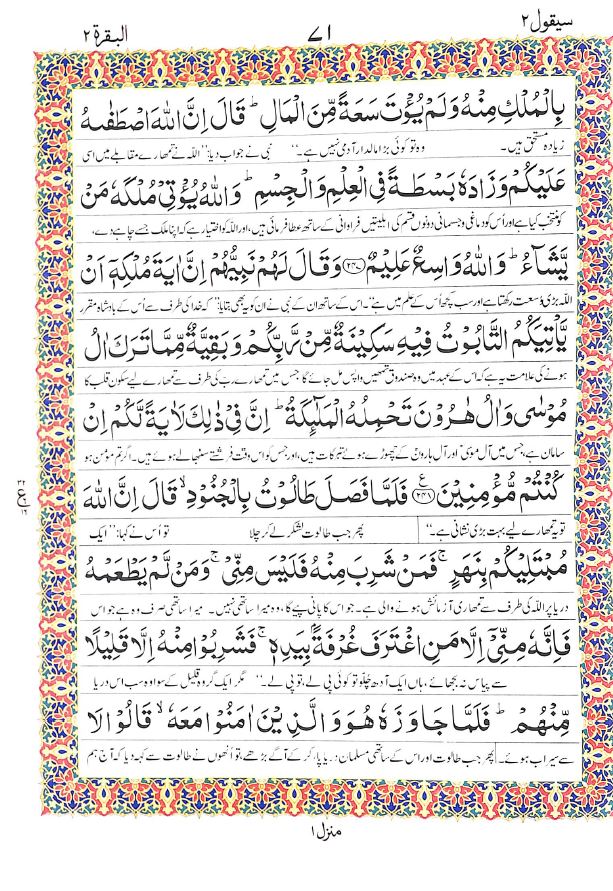 سیقول ۲
۷۱
البقرة ۲
بِالْمُلْكِ مِنْهُ وَلَمْ يُؤْتَ سَعَةً مِّنَ الْمَالِ ؕ قَالَ اِنَّ اللّٰهَ اصْطَفٰىهُ
زیادہ مستحق ہیں۔ وہ تو کوئی بڑا مالدار آدمی نہیں ہے۔‘‘ نبی نے جواب دیا: ’’اللہ نے تمھارے مقابلے میں اسی
عَلَيْكُمْ وَزَادَهٗ بَسْطَةً فِى الْعِلْمِ وَالْجِسْمِ ؕ وَاللّٰهُ يُؤْتِىْ مُلْكَهٗ مَنْ
کو منتخب کیا ہے اور اُس کو دماغی و جسمانی دونوں قسم کی اہلیتیں فراوانی کے ساتھ عطا فرمائی ہیں، اور اللہ کو اختیار ہے کہ اپنا ملک جسے چاہے دے،
يَّشَآءُ ؕ وَاللّٰهُ وَاسِعٌ عَلِيْمٌ ﴿۲۴۷﴾ وَقَالَ لَهُمْ نَبِيُّهُمْ اِنَّ اٰيَةَ مُلْكِهٖۤ اَنْ
اللہ بڑی وُسعت رکھتا ہے اور سب کچھ اُس کے علم میں ہے‘‘۔ اس کے ساتھ ان کے نبی نے ان کو یہ بھی بتایا: ’’کہ خدا کی طرف سے اُس کے بادشاہ مقرر
يَّاْتِيَكُمُ التَّابُوْتُ فِيْهِ سَكِيْنَةٌ مِّنْ رَّبِّكُمْ وَبَقِيَّةٌ مِّمَّا تَرَكَ اٰلُ
ہونے کی علامت یہ ہے کہ اس کے عہد میں وہ صندوق تمھیں واپس مل جائے گا، جس میں تمھارے رب کی طرف سے تمھارے لیے سکونِ قلب کا
مُوْسٰى وَاٰلُ هٰرُوْنَ تَحْمِلُهُ الْمَلٰٓئِكَةُ ؕ اِنَّ فِىْ ذٰلِكَ لَاٰيَةً لَّكُمْ اِنْ
سامان ہے، جس میں آلِ موسیٰؑ اور آلِ ہارونؑ کے چھوڑے ہوئے تبرکات ہیں، اور جس کو اس وقت فرشتے سنبھالے ہوئے ہیں۔ اگر تم مؤمن ہو
كُنْتُمْ مُّؤْمِنِيْنَ ﴿۲۴۸﴾ ع فَلَمَّا فَصَلَ طَالُوْتُ بِالْجُنُوْدِ ۙ قَالَ اِنَّ اللّٰهَ
تو یہ تمھارے لیے بہت بڑی نشانی ہے۔‘‘ پھر جب طالوت لشکر لے کر چلا تو اُس نے کہا: ’’ایک
مُبْتَلِيْكُمْ بِنَهَرٍ ۚ فَمَنْ شَرِبَ مِنْهُ فَلَيْسَ مِنِّىْ ۚ وَمَنْ لَّمْ يَطْعَمْهُ
دریا پر اللہ کی طرف سے تمھاری آزمائش ہونے والی ہے۔ جو اس کا پانی پیے گا، وہ میرا ساتھی نہیں۔ میرا ساتھی صرف وہ ہے جو اس
فَاِنَّهٗ مِنِّىْۤ اِلَّا مَنِ اغْتَرَفَ غُرْفَةًۢ بِيَدِهٖ ۚ فَشَرِبُوْا مِنْهُ اِلَّا قَلِيْلًا
سے پیاس نہ بجھائے، ہاں ایک آدھ چلّو تو کوئی پی لے، تو پی لے۔‘‘ مگر ایک گروہِ قلیل کے سوا وہ سب اس دریا
مِّنْهُمْ ؕ فَلَمَّا جَاوَزَهٗ هُوَ وَالَّذِيْنَ اٰمَنُوْا مَعَهٗ ۙ قَالُوْا لَا
سے سیراب ہوئے۔ پھر جب طالوت اور اس کے ساتھی مسلمان دریا پار کر کے آگے بڑھے، تو اُنھوں نے طالوت سے کہہ دیا کہ آج ہم
منزل ۱